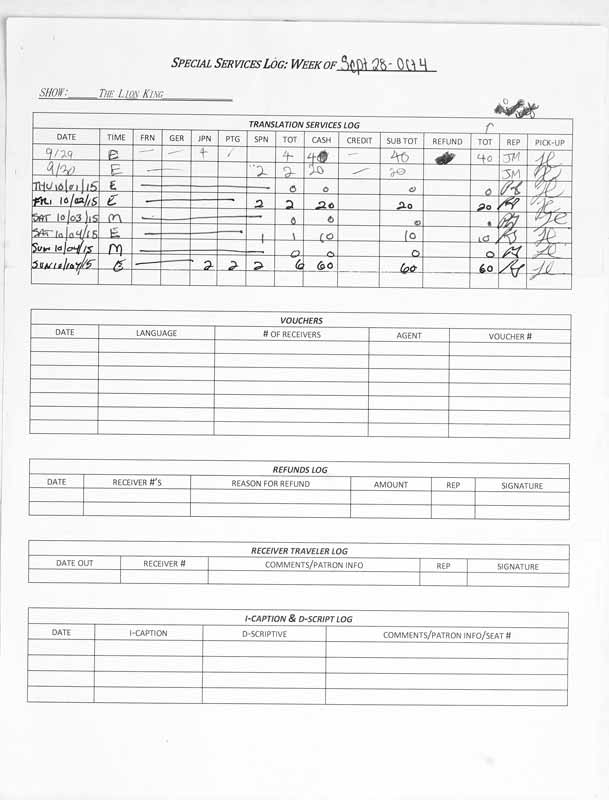 SPECIAL SERVICES LOG: WEEK OF Sept 28 - Oct 4
SHOW: THE LION KING
TRANSLATION SERVICES LOG
DATE TIME FRN GER JPN PTG SPN TOT CASH CREDIT SUB TOT REFUND TOT REP PICK-UP
9/29 E — — 4 / 4 40 — 40 40 JM
9/30 E 2 2 20 — 20 JM
THU 10/01/15 E 0 0 0 0
FRI 10/02/15 E 2 2 20 20 20
SAT 10/03/15 M 0 0 0 0
SAT 10/04/15 E 1 1 10 10 10
SUN 10/04/15 M 0 0 0 0
SUN 10/04/15 E 2 2 2 6 60 60 60
VOUCHERS
DATE LANGUAGE # OF RECEIVERS AGENT VOUCHER #
REFUNDS LOG
DATE RECEIVER #'S REASON FOR REFUND AMOUNT REP SIGNATURE
RECEIVER TRAVELER LOG
DATE OUT RECEIVER # COMMENTS/PATRON INFO REP SIGNATURE
I-CAPTION & D-SCRIPT LOG
DATE I-CAPTION D-SCRIPTIVE COMMENTS/PATRON INFO/SEAT #